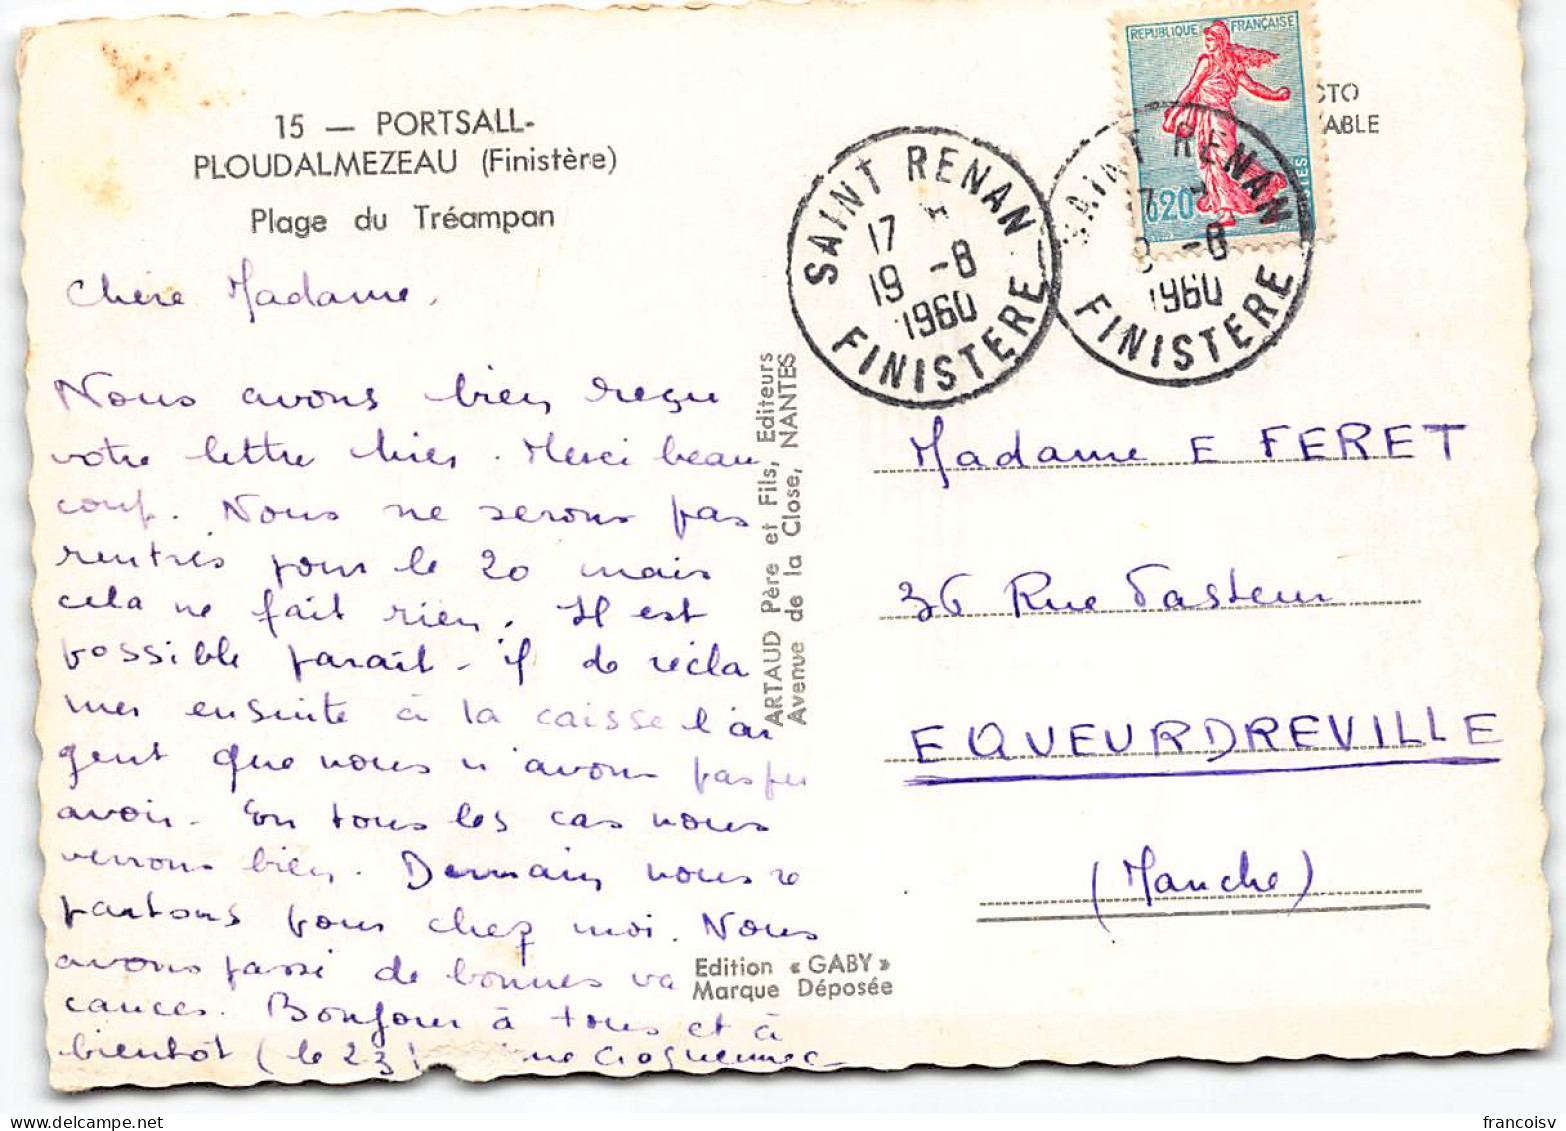 15 — PORTSALL-
PLOUDALMEZEAU (Finistère)
Plage du Tréampan
Chère Madame,
Nous avons bien reçu
votre lettre hier. Merci beau
coup. Nous ne serons pas
rentrés pour le 20 mais
cela ne fait rien. Il est
possible parait-il de récla
mer ensuite à la caisse l'ar
gent que nous n'avons pas pu
avoir. En tous les cas nous
verrons bien. Demain nous re
partons pour chez moi. Nous
avons passé de bonnes va
cances. Bonjour à tous et à
bientôt (le 23)
ARTAUD Père et Fils, Editeurs
Avenue de la Close, NANTES
Edition « GABY »
Marque Déposée
REPUBLIQUE FRANÇAISE
0,20
POSTES
OTO
ABLE
SAINT RENAN
17
19 -8
1960
FINISTERE
SAINT RENAN
17
-8
1960
FINISTERE
Madame E FERET
36 Rue Pasteur
EQUEURDREVILLE
(Manche)
francoisv